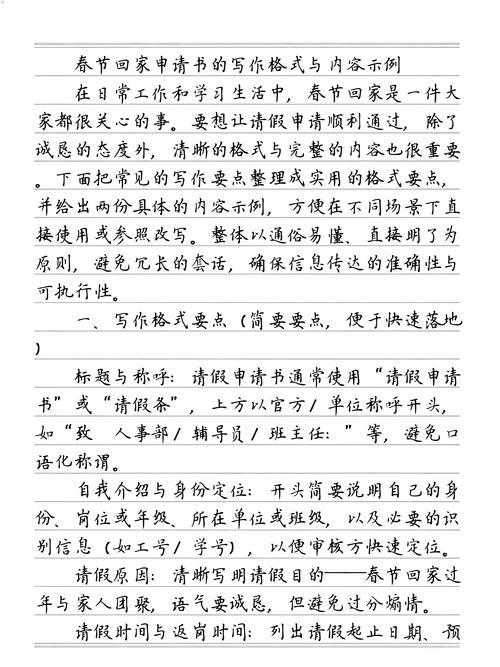 春节回家申请书的写作格式与内容示例
在日常工作和学习生活中，春节回家是一件大
家都很关心的事。要想让请假申请顺利通过，除了
诚恳的态度外，清晰的格式与完整的内容也很重要
。下面把常见的写作要点整理成实用的格式要点，
并给出两份具体的内容示例，方便在不同场景下直
接使用或参照改写。整体以通俗易懂、直接明了为
原则，避免冗长的套话，确保信息传达的准确性与
可执行性。
一、写作格式要点（简要要点，便于快速落地
）
标题与称呼：请假申请书通常使用“请假申请
书”或“请假条”，上方以官方/单位称呼开头，
如“致 人事部/辅导员/班主任：”等，避免口
语化称谓。
自我介绍与身份定位：开头简要说明自己的身
份、岗位或年级、所在单位或班级，以及必要的识
别信息（如工号/学号），以便审核方快速定位。
请假原因：清晰写明请假目的——春节回家过
年与家人团聚，语气要诚恳，但避免过分煽情。
请假时间与返岗时间：列出请假起止日期、预